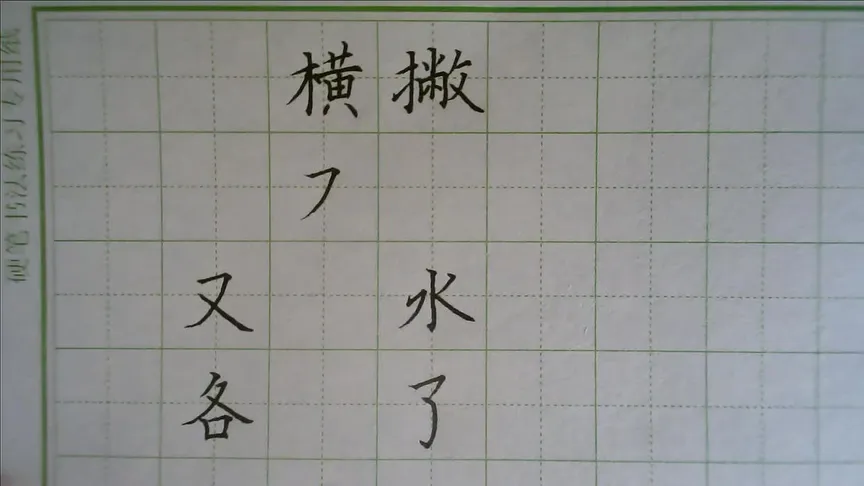 横撇
㇇
又 水
各 了
硬笔书法练习专用纸